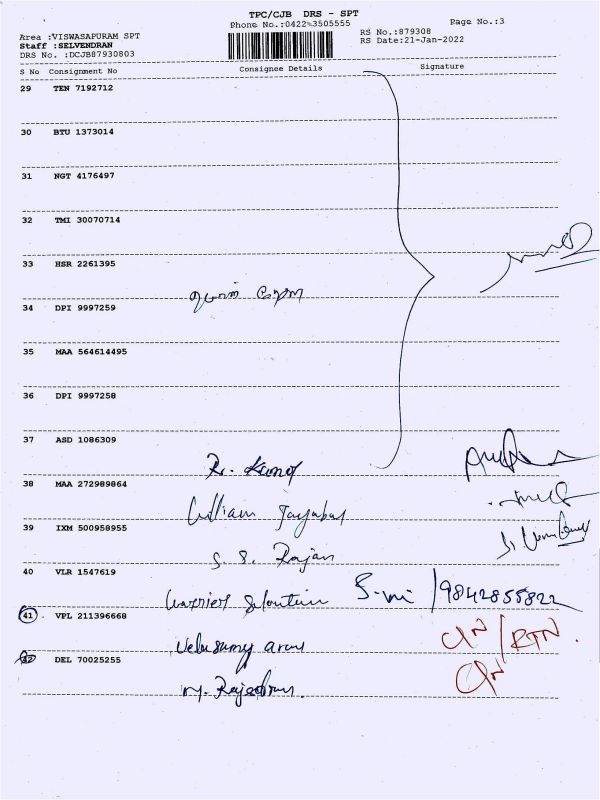 TPC/CJB DRS - SPT
Phone No.:0422-3505555 Page No.:3
Area :VISWASAPURAM SPT RS No.:879308
Staff :SELVENDRAN RS Date:21-Jan-2022
DRS No. :DCJB87930803
S No Consignment No Consignee Details Signature
29 TEN 7192712
30 BTU 1373014
31 NGT 4176497
32 TMI 30070714
33 HSR 2261395
34 DPI 9997259
35 MAA 564614495
36 DPI 9997258
37 ASD 1086309
38 MAA 272989864
William
39 IXM 500958955
S. S. Rajan
40 VLR 1547619
9842855822
41 VPL 211396668
Velusamy
42 DEL 70025255